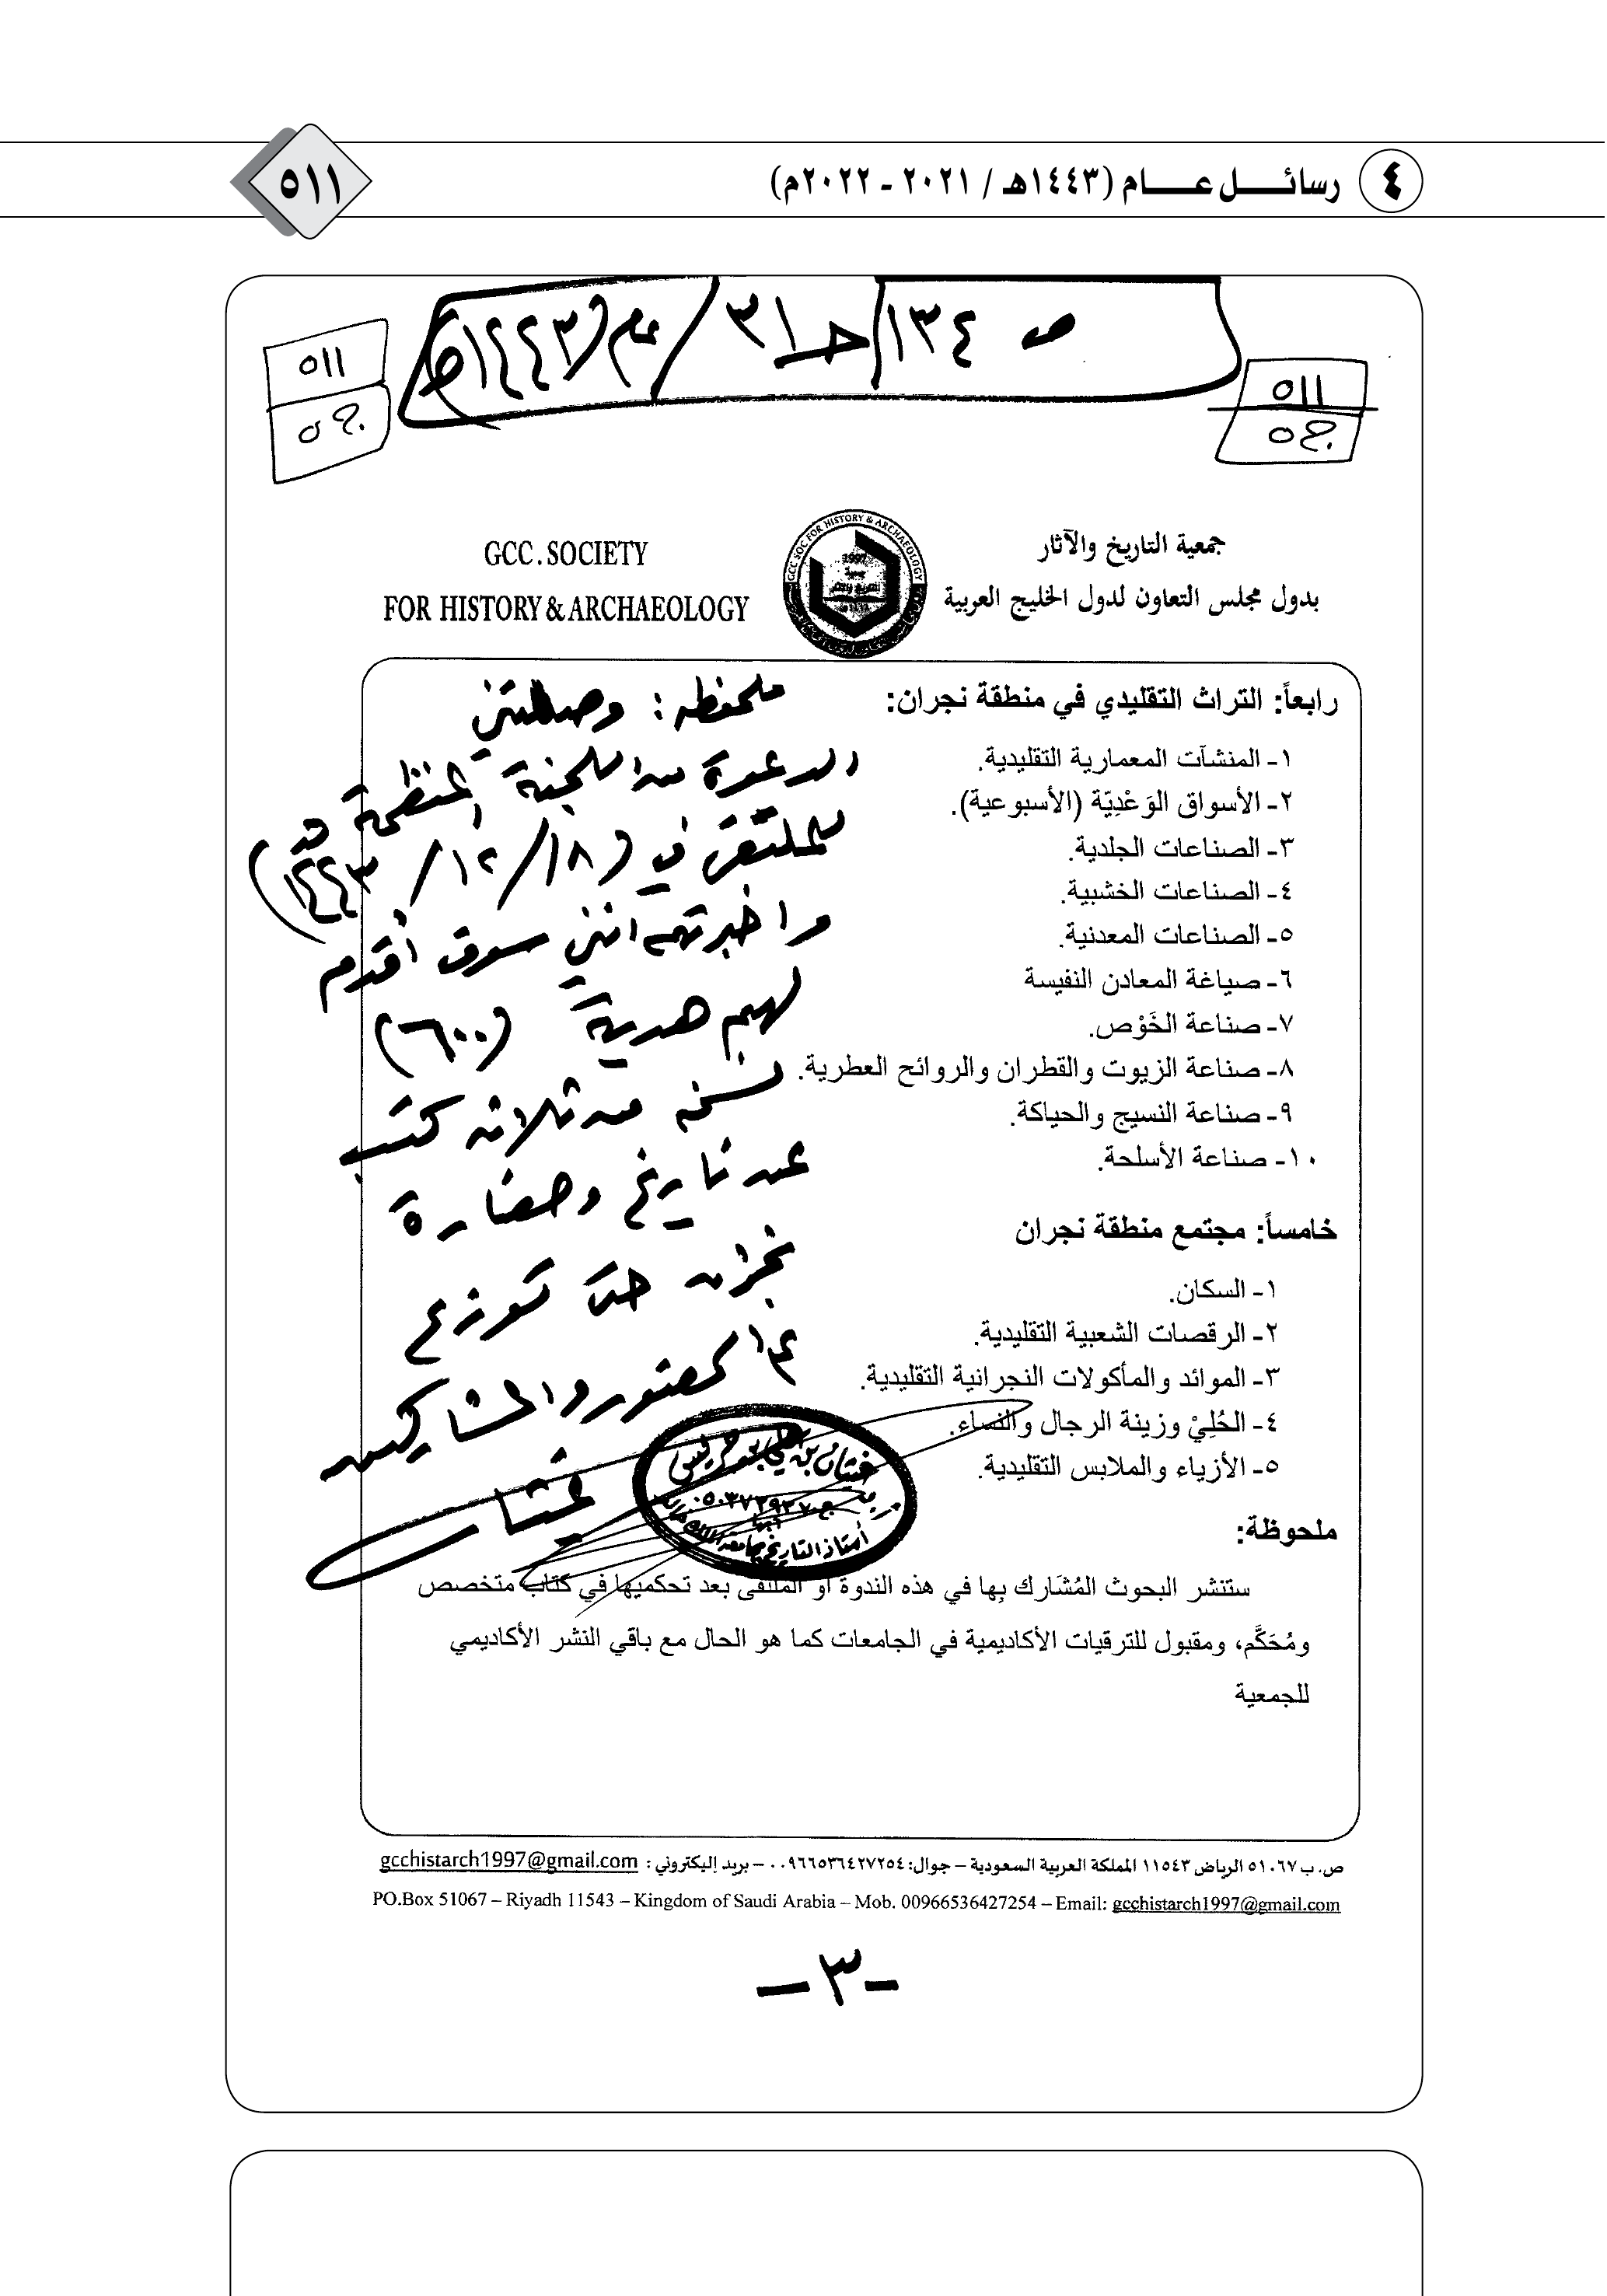 ٤ رسائل عام (١٤٤٣هـ / ٢٠٢١ - ٢٠٢٢م)
٥١١
ص ١٣٤ / حـ ٣١ / عام (١٤٤٣هـ)
٥١١
٥٢.
٥١١
٥٢.
جمعية التاريخ والآثار
بدول مجلس التعاون لدول الخليج العربية
GCC. SOCIETY
FOR HISTORY & ARCHAEOLOGY
GCC SOC FOR HISTORY & ARCHAEOLOGY
1997
رابعاً: التراث التقليدي في منطقة نجران:
١- المنشآت المعمارية التقليدية.
٢- الأسواق الوَعْدِيّة (الأسبوعية).
٣- الصناعات الجلدية.
٤- الصناعات الخشبية.
٥- الصناعات المعدنية.
٦- صياغة المعادن النفيسة
٧- صناعة الخَوْص.
٨- صناعة الزيوت والقطران والروائح العطرية.
٩- صناعة النسيج والحياكة.
١٠- صناعة الأسلحة.
خامساً: مجتمع منطقة نجران
١- السكان.
٢- الرقصات الشعبية التقليدية.
٣- الموائد والمأكولات النجرانية التقليدية.
٤- الحُلِيْ وزينة الرجال والنساء.
٥- الأزياء والملابس التقليدية.
ملحظه: وصلتني
الدعوة من اللجنة المنظمة
للملتقى في (١٨/١٢/١٤٤٣هـ)
واخبرتهم انني سوف أقدم
لهم هدية (٦٠٠)
نسخه من ثلاثه كتب
عن تاريخ وحضارة
نجران حتى توزع
على الحضور والمشاركين
غيثان
غيثان بن علي بن جريس
أستاذ التاريخ بجامعة الملك خالد
ملحوظة:
ستنشر البحوث المُشَارك بِها في هذه الندوة أو الملتقى بعد تحكميها في كتاب متخصص
ومُحَكَّم، ومقبول للترقيات الأكاديمية في الجامعات كما هو الحال مع باقي النشر الأكاديمي
للجمعية
ص. ب ٥١٠٦٧ الرياض ١١٥٤٣ المملكة العربية السعودية – جوال: ٠٠٩٦٦٥٣٦٤٢٧٢٥٤ – بريد إليكتروني : gcchistarch1997@gmail.com
PO.Box 51067 – Riyadh 11543 – Kingdom of Saudi Arabia – Mob. 00966536427254 – Email: gcchistarch1997@gmail.com
- ٣ -